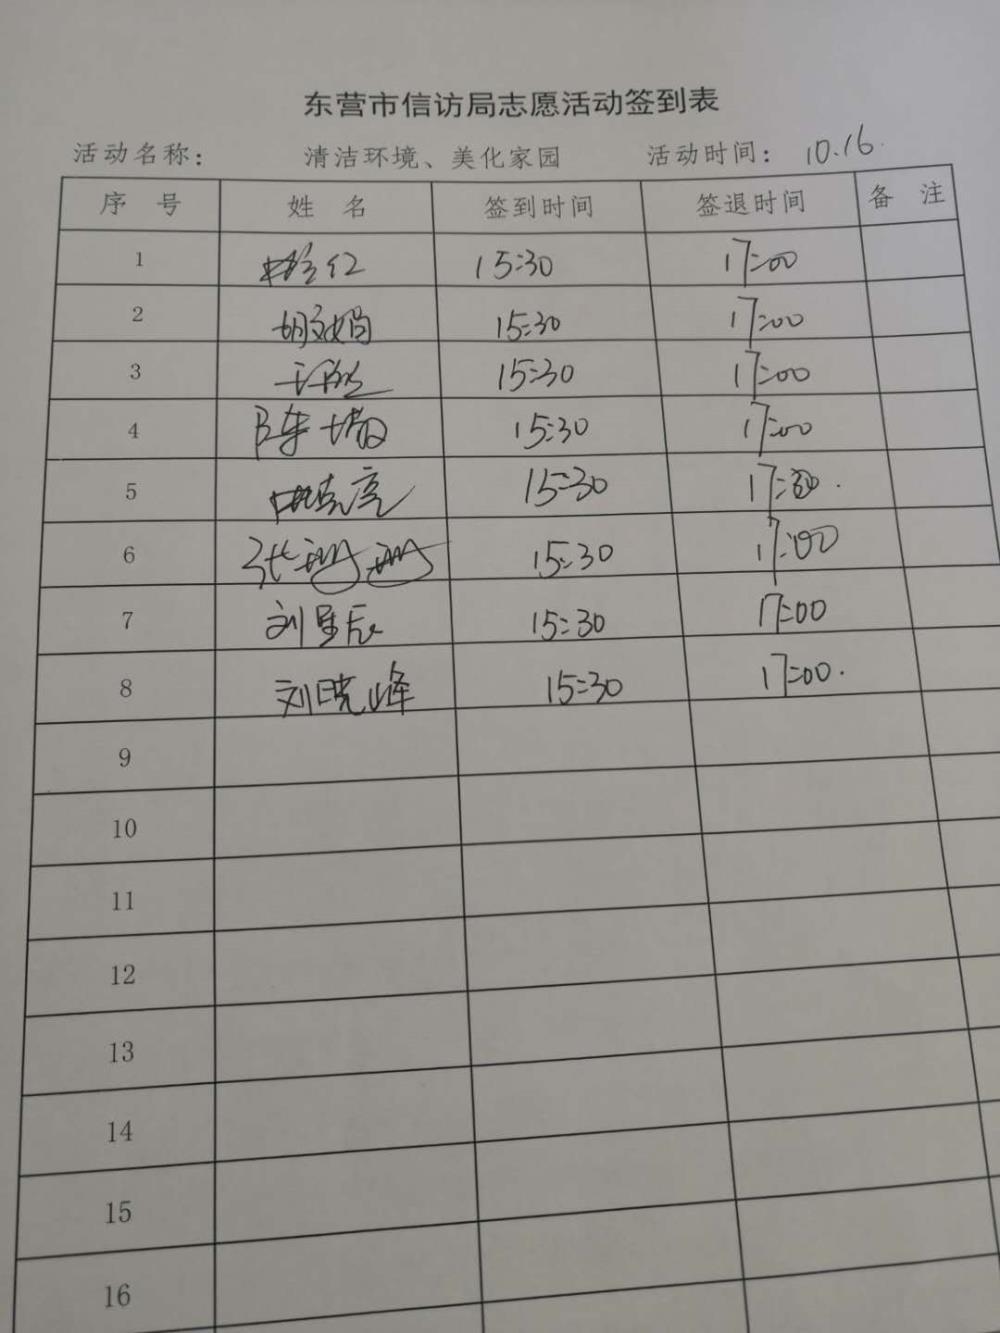 东营市信访局志愿活动签到表
活动名称： 清洁环境、美化家园 活动时间： 10.16.
序 号 姓 名 签到时间 签退时间 备 注
1 15:30 17:00
2 15:30 17:00
3 15:30 17:00
4 陈瑞 15:30 17:00
5 15:30 17:00.
6 张珊珊 15:30 17:00
7 刘星辰 15:30 17:00
8 刘晓峰 15:30 17:00.
9
10
11
12
13
14
15
16